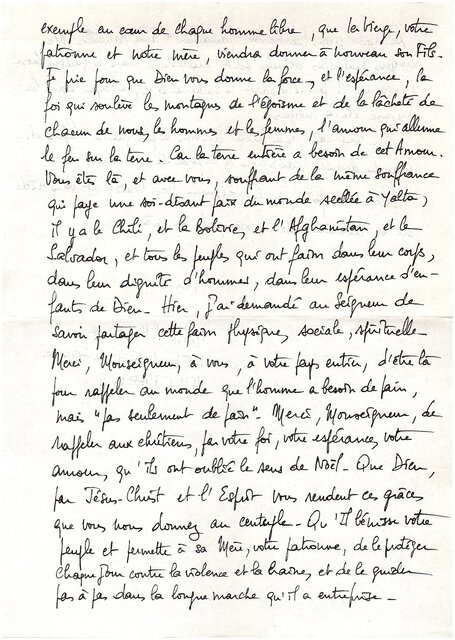 exemple au cœur de chaque homme libre, que la Vierge, votre
patronne et notre mère, viendra donner à nouveau son Fils.
Je prie pour que Dieu vous donne la force, et l'espérance, la
foi qui soulève les montagnes de l'égoïsme et de la lâcheté de
chacun de nous, les hommes et les femmes, l'amour qui allume
le feu sur la terre. Car la terre entière a besoin de cet Amour.
Vous êtes là, et avec vous, souffrant de la même souffrance
qui paye une soi-disant paix du monde scellée à Yalta,
il y a le Chili, et la Bolivie, et l'Afghanistan, et le
Salvador, et tous les peuples qui ont faim dans leur corps,
dans leur dignité d'hommes, dans leur espérance d'en-
fants de Dieu - Hier, j'ai demandé au Seigneur de
savoir partager cette faim physique, sociale, spirituelle -
Merci, Monseigneur, à vous, à votre pays entier, d'être là
pour rappeler au monde que l'homme a besoin de pain,
mais "pas seulement de pain". Merci, Monseigneur, de
rappeler aux chrétiens, par votre foi, votre espérance, votre
amour, qu'ils ont oublié le sens de Noël - Que Dieu,
par Jésus-Christ et l'Esprit vous rendent ces grâces
que vous nous donnez au centuple - Qu'Il bénisse votre
peuple et permette à sa Mère, votre patronne, de le protéger
chaque jour contre la violence et la haine, et de le guider
pas à pas dans la longue marche qu'il a entreprise -